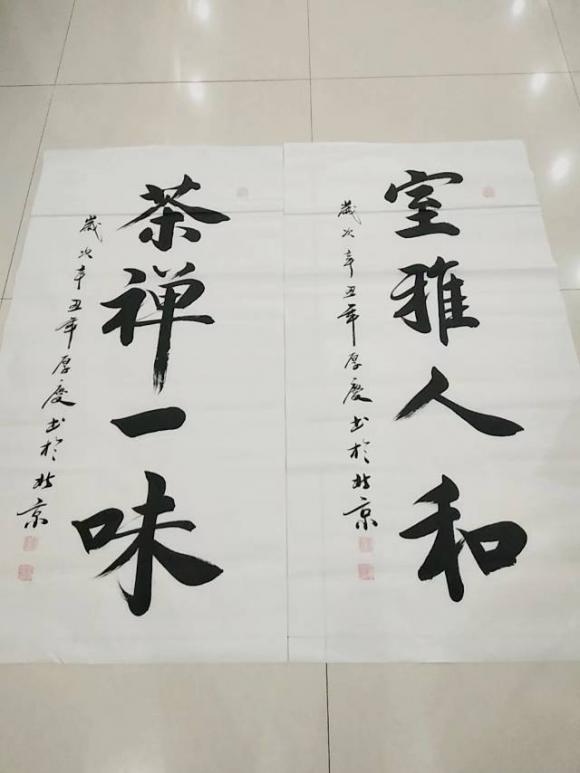 室雅人和
歲次辛丑年厚慶书於北京
茶禅一味
歲次辛丑年厚慶书於北京